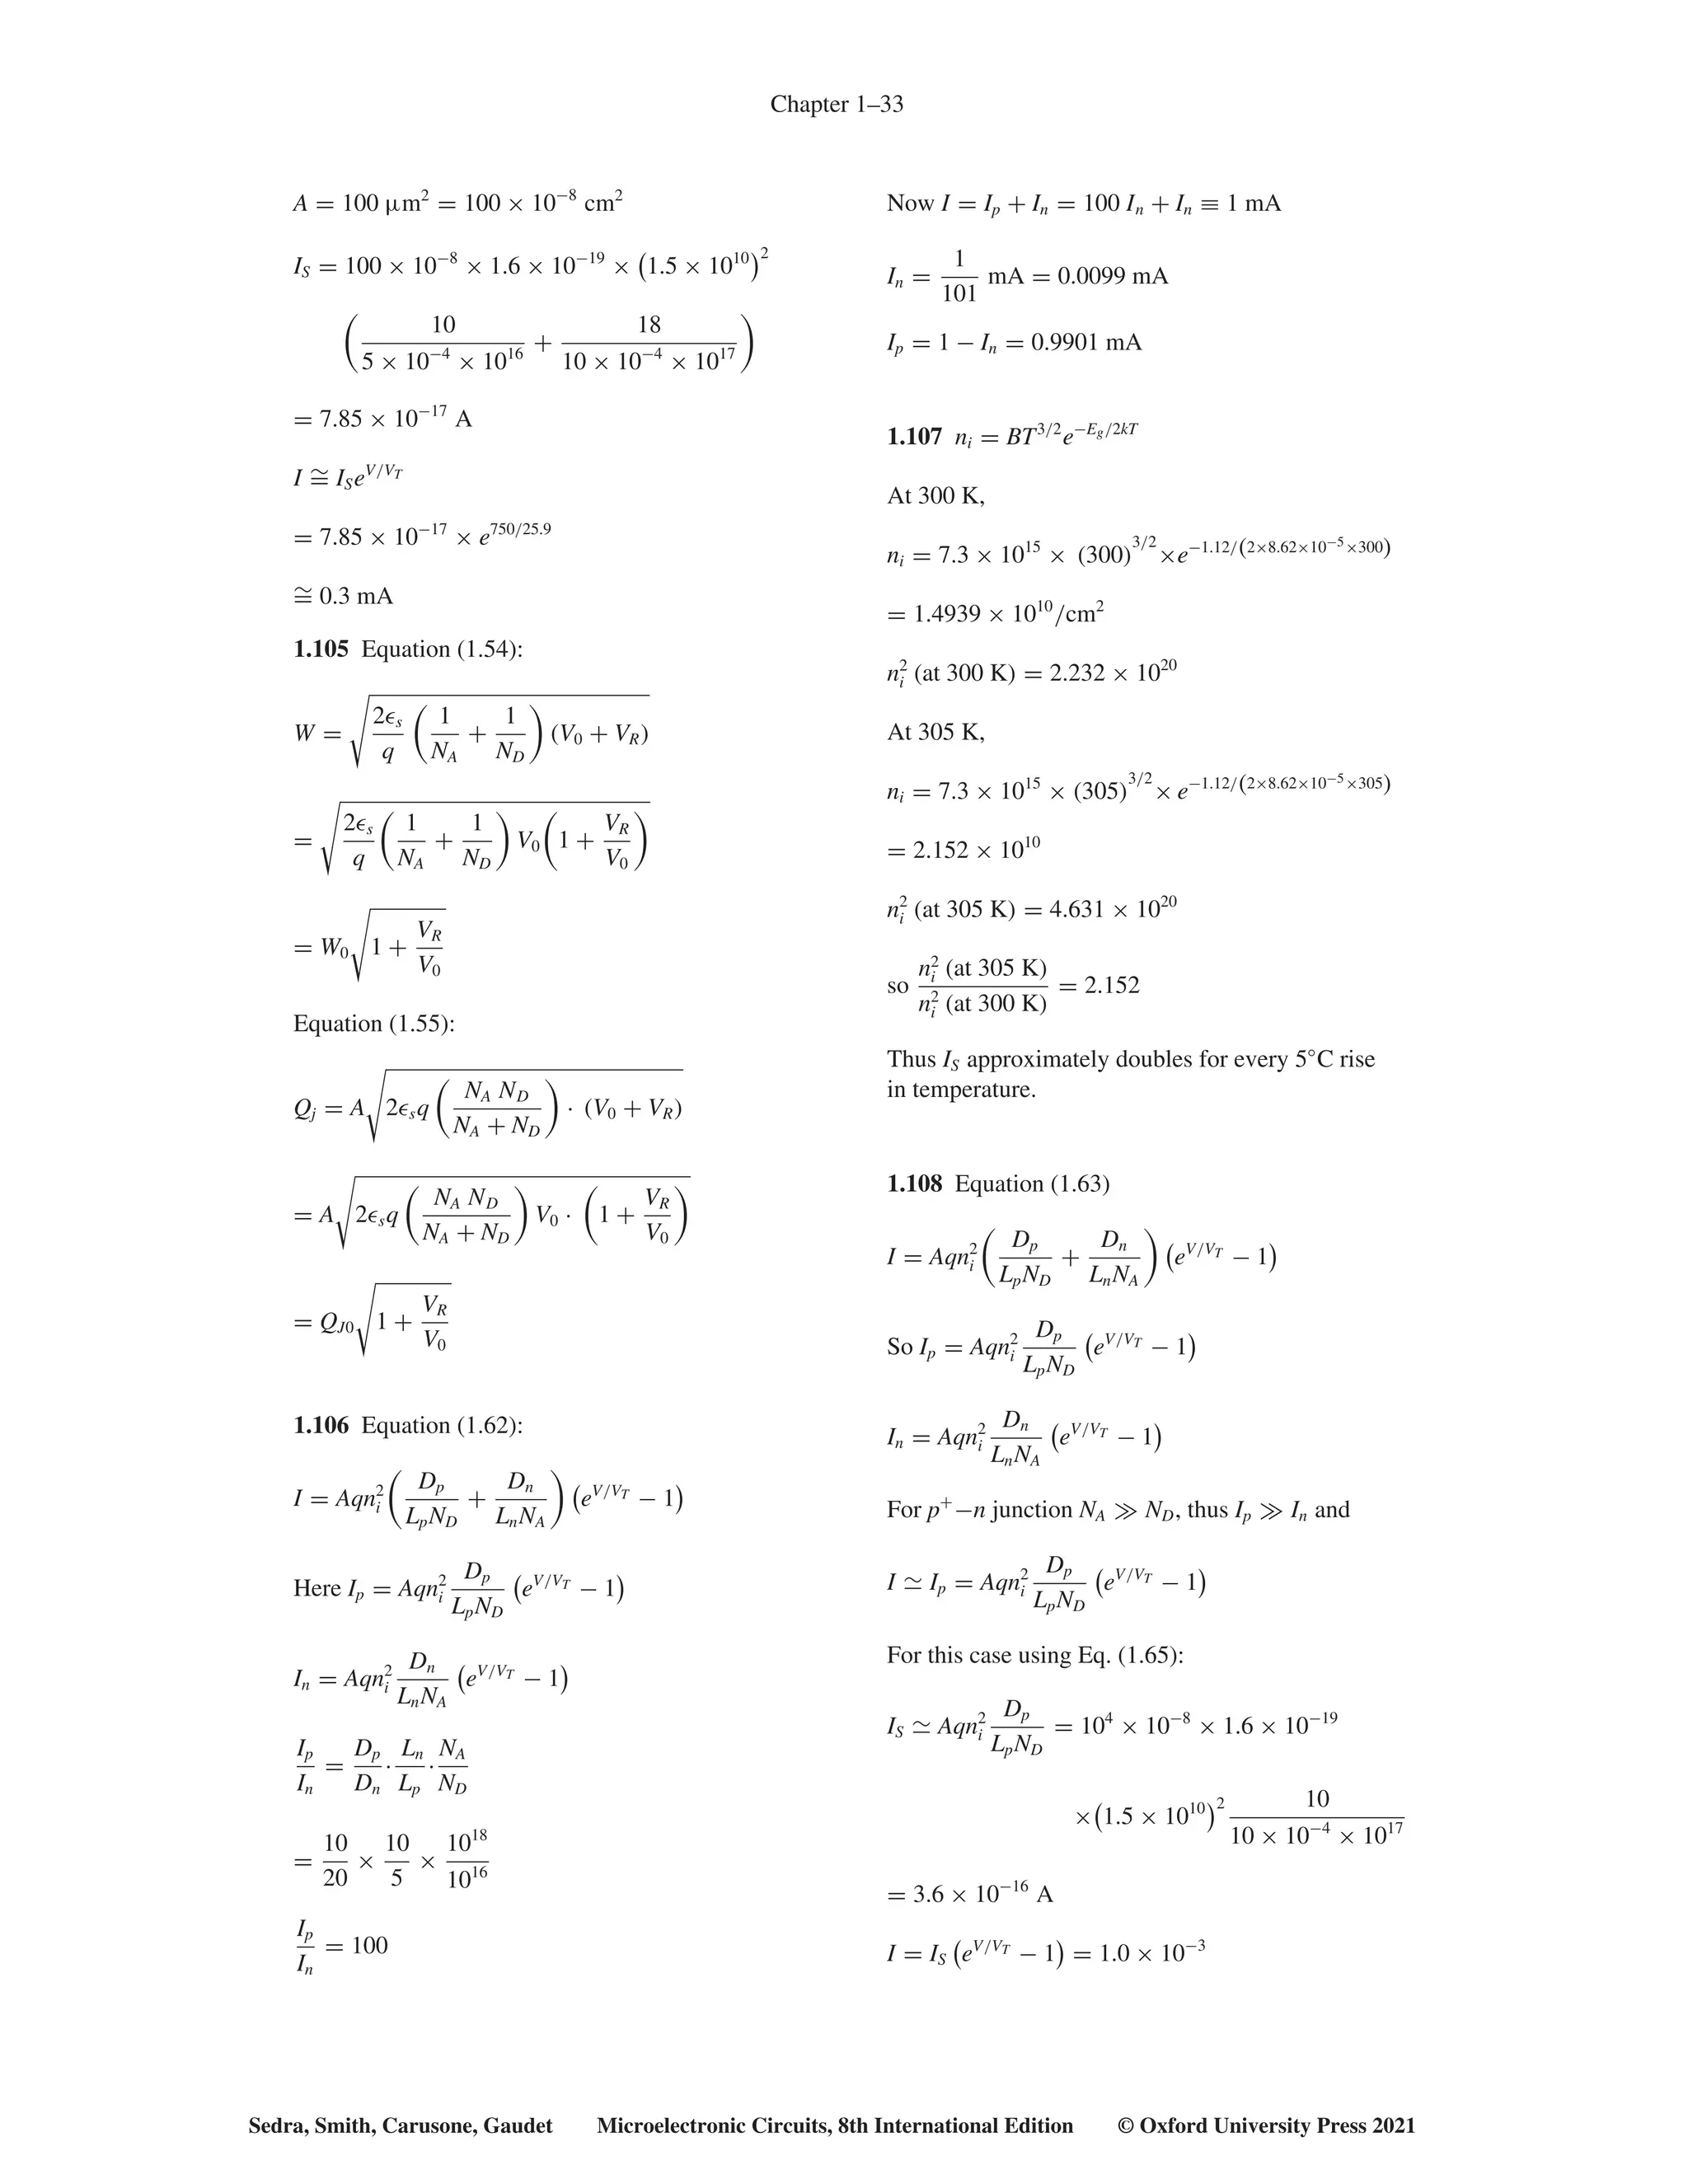 Chapter 1–33
A = 100 μm² = 100 × 10⁻⁸ cm²
I_S = 100 × 10⁻⁸ × 1.6 × 10⁻¹⁹ × (1.5 × 10¹⁰)²
(10/(5 × 10⁻⁴ × 10¹⁶) + 18/(10 × 10⁻⁴ × 10¹⁷))
= 7.85 × 10⁻¹⁷ A
I ≅ I_S e^{V/V_T}
= 7.85 × 10⁻¹⁷ × e^{750/25.9}
≅ 0.3 mA
1.105 Equation (1.54):
W = √((2ϵ_s/q)(1/N_A + 1/N_D)(V_0 + V_R))
= √((2ϵ_s/q)(1/N_A + 1/N_D)V_0(1 + V_R/V_0))
= W_0√(1 + V_R/V_0)
Equation (1.55):
Q_j = A√(2ϵ_s q(N_A N_D/(N_A + N_D)) · (V_0 + V_R))
= A√(2ϵ_s q(N_A N_D/(N_A + N_D))V_0 · (1 + V_R/V_0))
= Q_{J0}√(1 + V_R/V_0)
1.106 Equation (1.62):
I = Aqn_i²(D_p/(L_p N_D) + D_n/(L_n N_A))(e^{V/V_T} − 1)
Here I_p = Aqn_i² D_p/(L_p N_D) (e^{V/V_T} − 1)
I_n = Aqn_i² D_n/(L_n N_A) (e^{V/V_T} − 1)
I_p/I_n = D_p/D_n · L_n/L_p · N_A/N_D
= 10/20 × 10/5 × 10¹⁸/10¹⁶
I_p/I_n = 100
Now I = I_p + I_n = 100 I_n + I_n ≡ 1 mA
I_n = 1/101 mA = 0.0099 mA
I_p = 1 − I_n = 0.9901 mA
1.107 n_i = BT^{3/2}e^{−E_g/2kT}
At 300 K,
n_i = 7.3 × 10¹⁵ × (300)^{3/2} × e^{−1.12/(2×8.62×10⁻⁵×300)}
= 1.4939 × 10¹⁰/cm²
n_i² (at 300 K) = 2.232 × 10²⁰
At 305 K,
n_i = 7.3 × 10¹⁵ × (305)^{3/2} × e^{−1.12/(2×8.62×10⁻⁵×305)}
= 2.152 × 10¹⁰
n_i² (at 305 K) = 4.631 × 10²⁰
so n_i² (at 305 K)/n_i² (at 300 K) = 2.152
Thus I_S approximately doubles for every 5°C rise
in temperature.
1.108 Equation (1.63)
I = Aqn_i²(D_p/(L_p N_D) + D_n/(L_n N_A))(e^{V/V_T} − 1)
So I_p = Aqn_i² D_p/(L_p N_D) (e^{V/V_T} − 1)
I_n = Aqn_i² D_n/(L_n N_A) (e^{V/V_T} − 1)
For p⁺−n junction N_A ≫ N_D, thus I_p ≫ I_n and
I ≃ I_p = Aqn_i² D_p/(L_p N_D) (e^{V/V_T} − 1)
For this case using Eq. (1.65):
I_S ≃ Aqn_i² D_p/(L_p N_D) = 10⁴ × 10⁻⁸ × 1.6 × 10⁻¹⁹
×(1.5 × 10¹⁰)² 10/(10 × 10⁻⁴ × 10¹⁷)
= 3.6 × 10⁻¹⁶ A
I = I_S (e^{V/V_T} − 1) = 1.0 × 10⁻³
Sedra, Smith, Carusone, Gaudet Microelectronic Circuits, 8th International Edition © Oxford University Press 2021